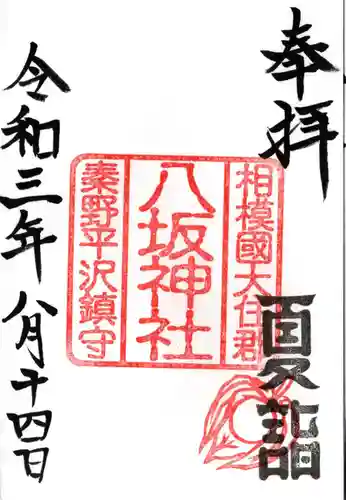 奉拝
夏詣
相模國大住郡
八坂神社
秦野平沢鎮守
令和三年八月十四日